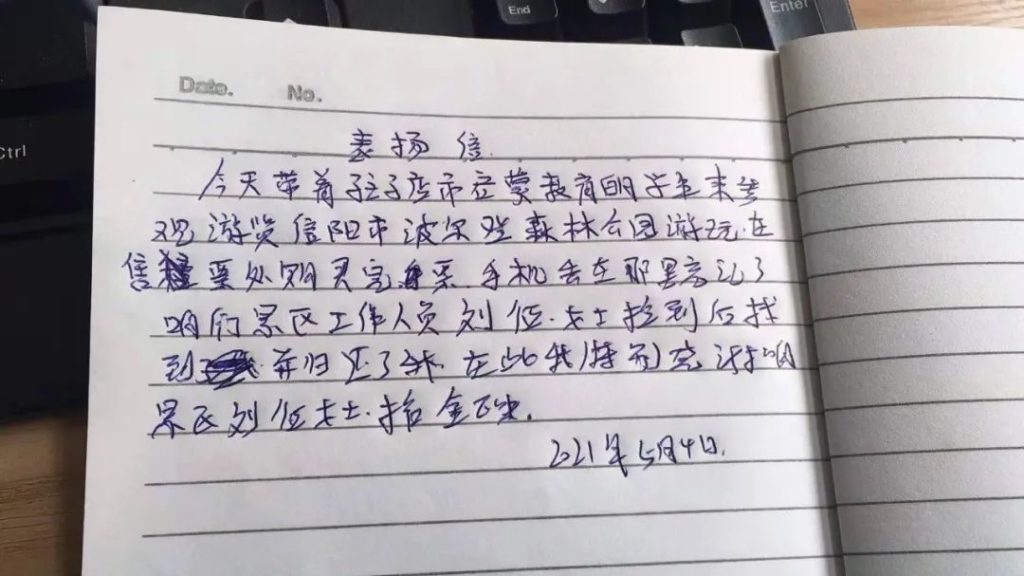 End
Enter
Ctrl
Date. No.
表扬信
今天带着孩子店市在蒙教育的学生来参
观游览信阳市波尔登森林公园游玩在
售票处购买完票手机丢在那里忘记了
咱们景区工作人员刘 女士捡到后找
到 并归还了我.在此我特 咱
景区刘 女士.拾金 .
2021年5月4日.